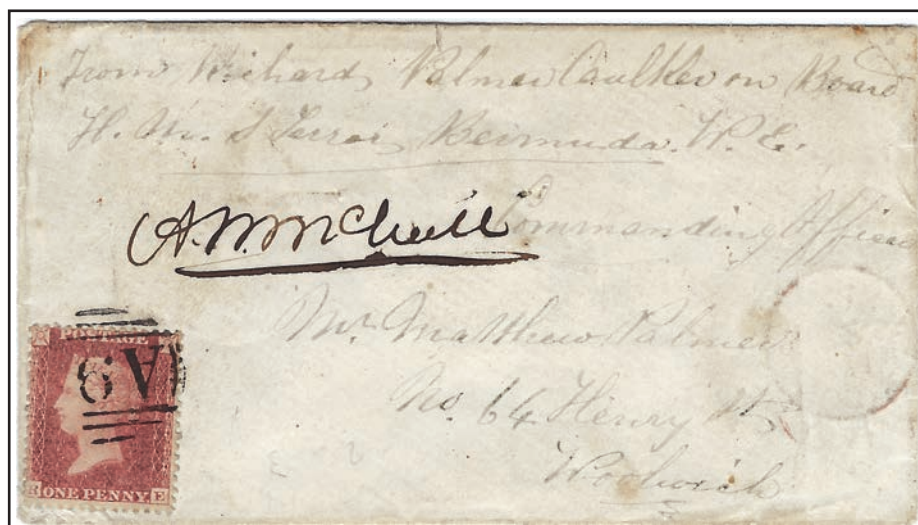 From Richard Palmer Caulker on Board
H. M. S Terror Bermuda. W. I.
Commanding Officer
Mr. Matthew Palmer
No. 64 Henry St
Woolwich
POSTAGE
A9
R ONE PENNY E